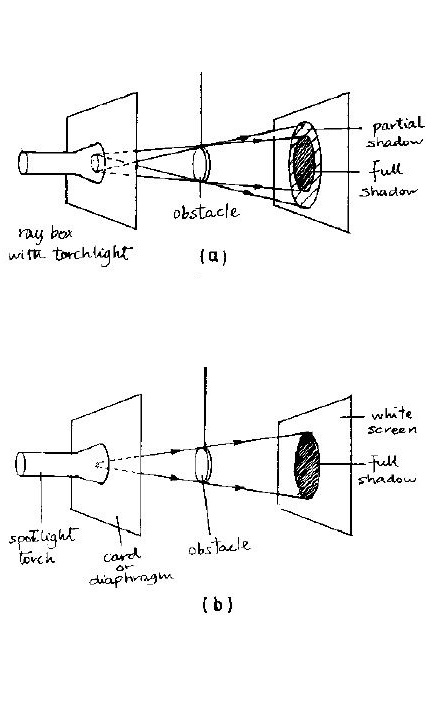 partial
shadow
full
shadow
obstacle
ray box
with torchlight
(a)
white
screen
full
shadow
spotlight
torch
card
or
diaphragm
obstacle
(b)